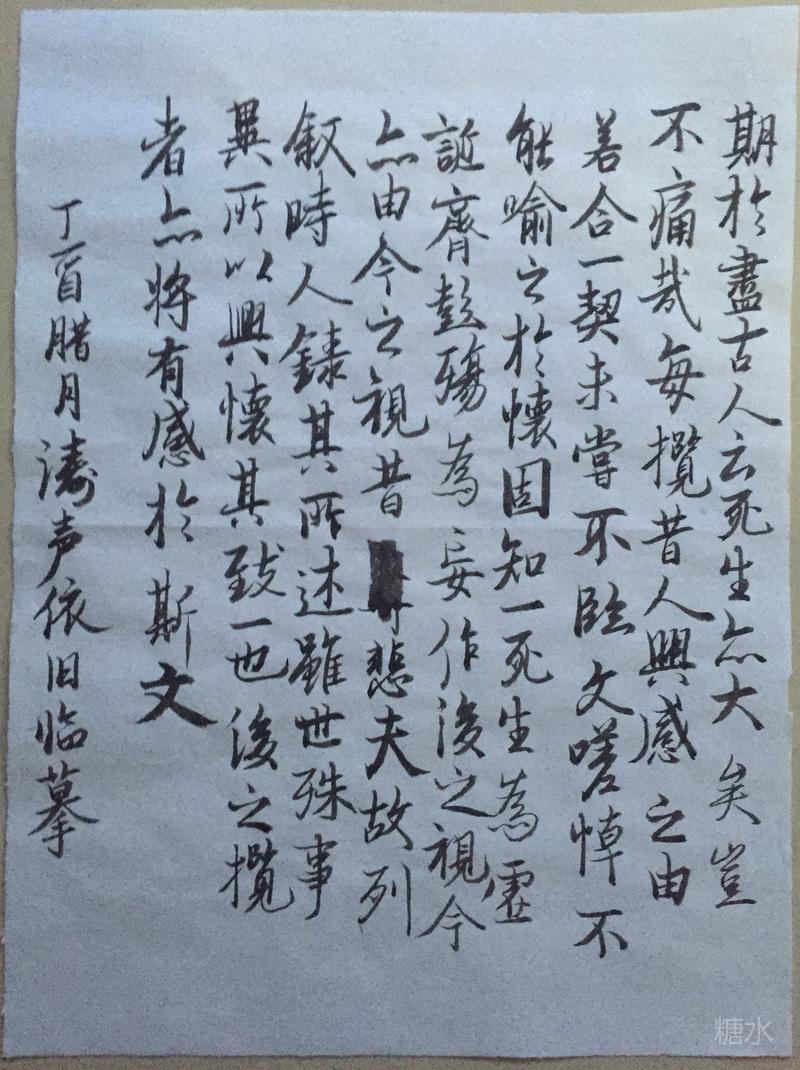 期於盡古人云死生亦大矣豈
不痛哉每攬昔人興感之由
若合一契未嘗不臨文嗟悼不
能喻之於懷固知一死生為虛
誕齊彭殤為妄作後之視今
亦由今之視昔悲夫故列
叙時人錄其所述雖世殊事
異所以興懷其致一也後之攬
者亦将有感於斯文
丁酉腊月涛声依旧临摹
糖水